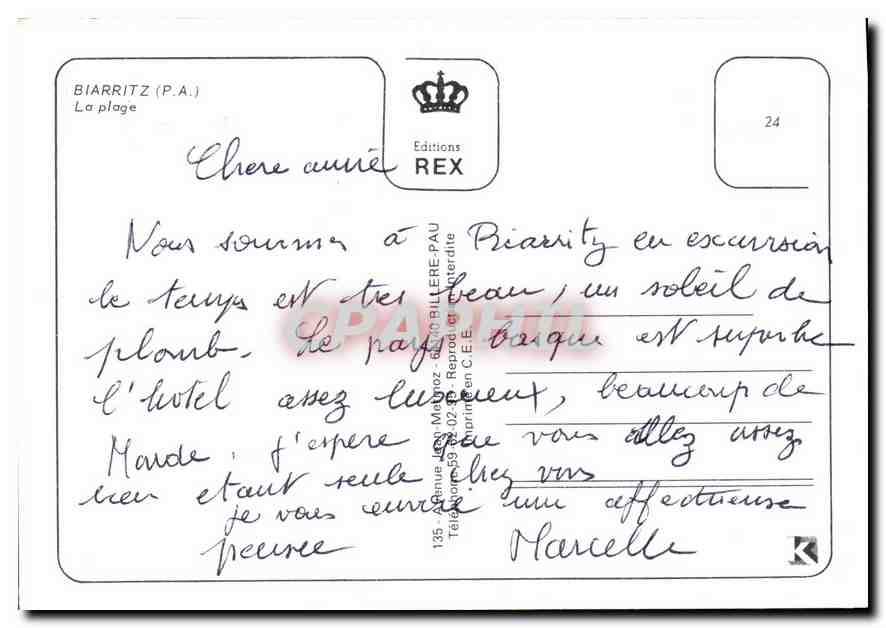 BIARRITZ (P.A.)
La plage
Editions
REX
24
Chere amie
Nous sommes à Biarritz en excursion
le temps est tres beau, un soleil de
plomb. Le pays basque est superbe
l'hotel assez luxueux, beaucoup de
Monde. J'espère que vous allez assez
bien etant seule chez vous
je vous envoie une affectueuse
pensée Marcelle
135 - Avenue Jean-Mermoz - 64140 BILLERE-PAU
Téléphone 59-02- - Reproduct interdite
Imprimé en C.E.E.
CPAPHIL
K